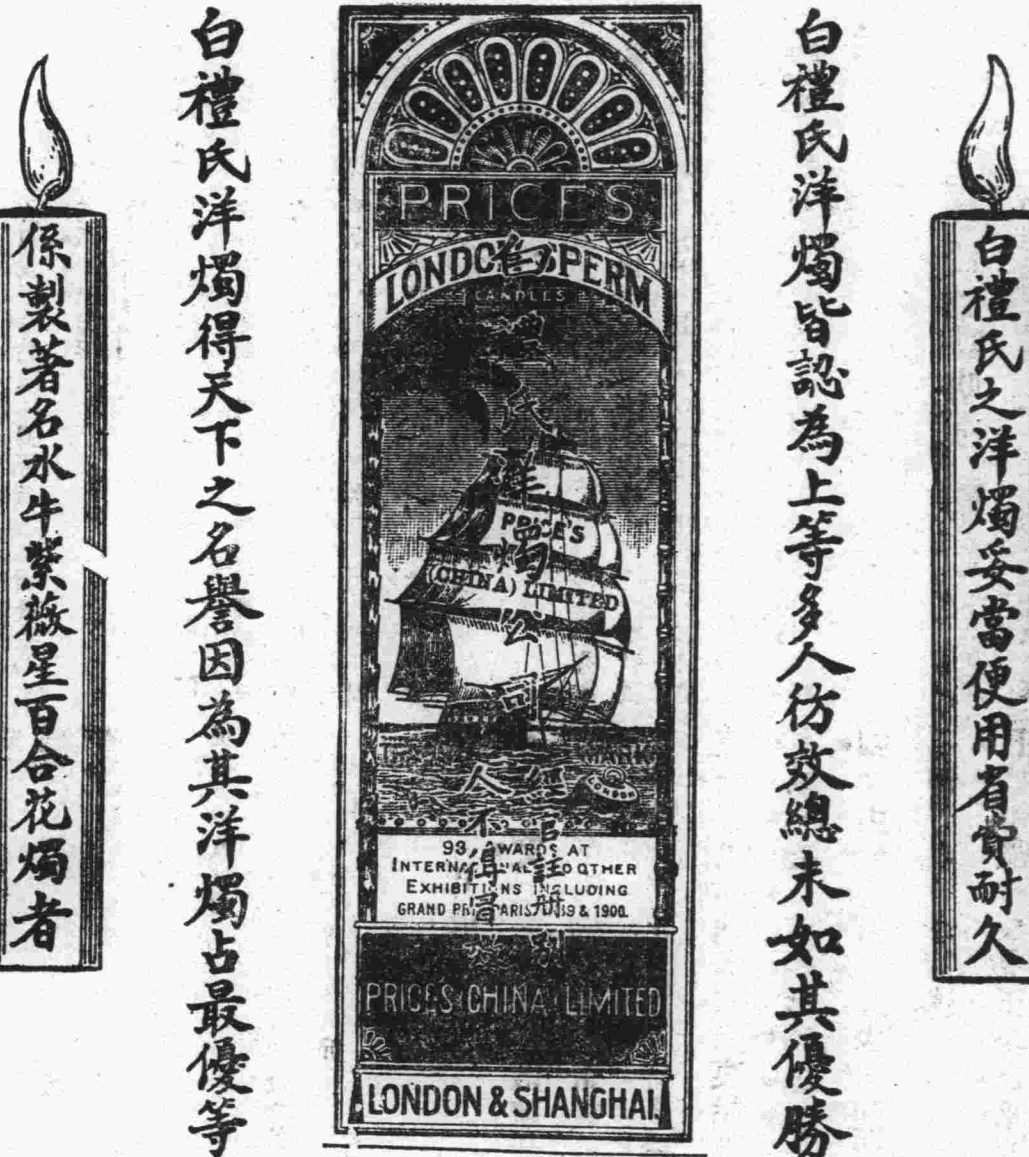 白禮氏之洋燭妥當便用省費耐久
白禮氏洋燭皆認為上等多人彷效總未如其優勝
PRICES
LONDON SPERM
CANDLES
白禮氏洋燭公司
PRICE'S
(CHINA) LIMITED
TRADE MARK
LONDON
經官註册別
人不得冒效
93 AWARDS AT
INTERNATIONAL AND OTHER
EXHIBITIONS INCLUDING
GRAND PRIX PARIS 1889 & 1900.
PRICES CHINA LIMITED
LONDON & SHANGHAI.
白禮氏洋燭得天下之名譽因為其洋燭占最優等
係製著名水牛紫薇星百合花燭者